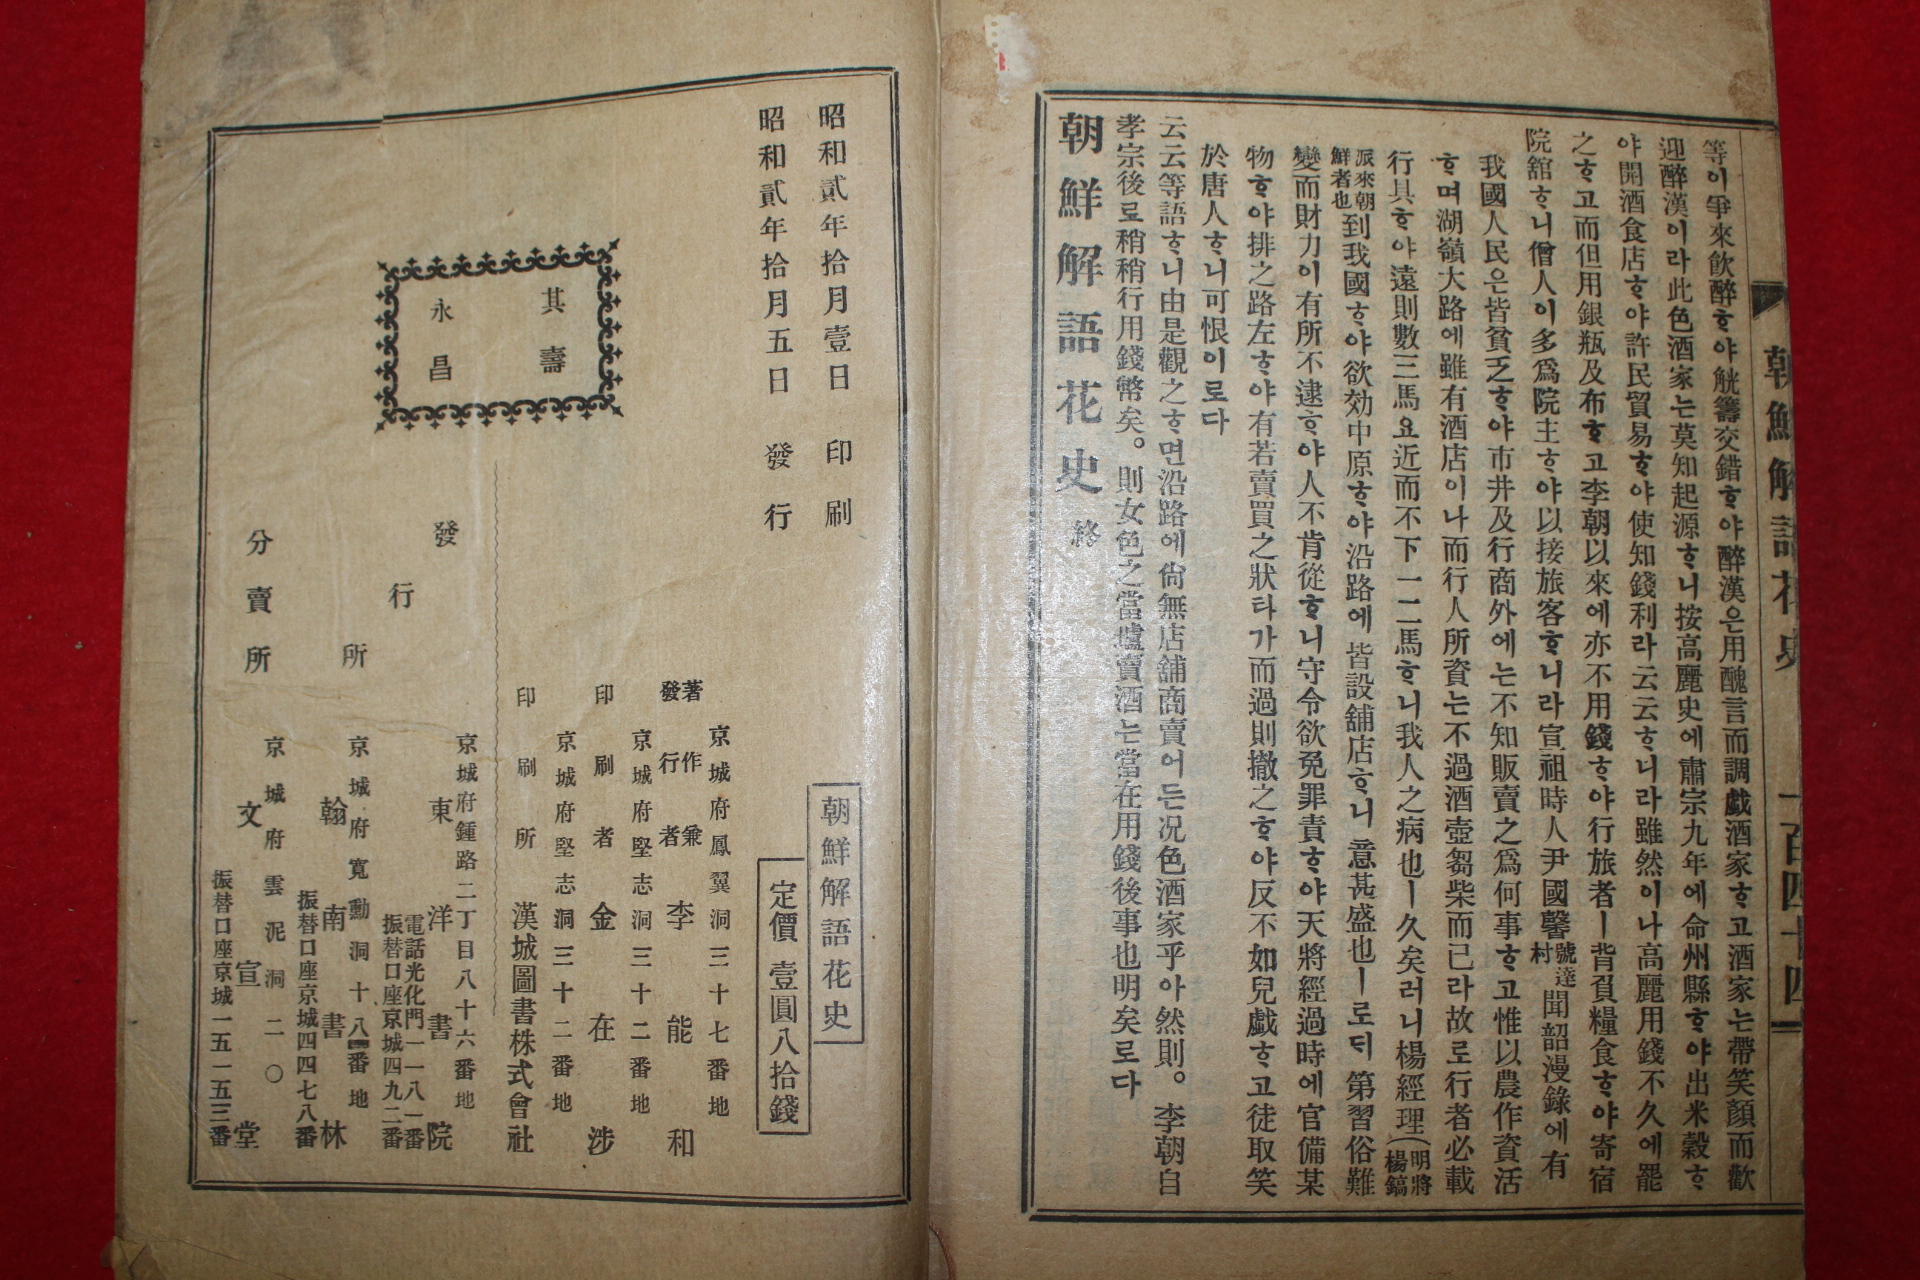 朝鮮解語花史
一百四十四
等이爭來飮醉ᄒᆞ야觥籌交錯ᄒᆞ야醉漢은用醜言而調戲酒家ᄒᆞ고酒家는帶笑顏而歡
迎醉漢이라此色酒家는莫知起源ᄒᆞ니按高麗史에肅宗九年에命州縣ᄒᆞ야出米穀ᄒᆞ
야開酒食店ᄒᆞ야許民貿易ᄒᆞ야使知錢利라云云ᄒᆞ니라雖然이나高麗用錢不久에罷
之ᄒᆞ고而但用銀瓶及布ᄒᆞ고李朝以來에亦不用錢ᄒᆞ야行旅者ㅣ背負糧食ᄒᆞ야寄宿
院舘ᄒᆞ니僧人이多爲院主ᄒᆞ야以接旅客ᄒᆞ니라宣祖時人尹國馨號達村聞韶漫錄에有
我國人民은皆貧乏ᄒᆞ야市井及行商外에는不知販賣之爲何事ᄒᆞ고惟以農作資活
ᄒᆞ며湖嶺大路에雖有酒店이나而行人所資는不過酒壺芻柴而已라故로行者必載
行具ᄒᆞ야遠則數三馬요近而不下一二馬ᄒᆞ니我人之病也ㅣ久矣러니楊經理(明將楊鎬
派來朝鮮者也到我國ᄒᆞ야欲効中原ᄒᆞ야沿路에皆設舖店ᄒᆞ니意甚盛也ㅣ로되第習俗難
變而財力이有所不逮ᄒᆞ야人不肯從ᄒᆞ니守令欲免罪責ᄒᆞ야天將經過時에官備某
物ᄒᆞ야排之路左ᄒᆞ야有若賣買之狀타가而過則撤之ᄒᆞ야反不如兒戲ᄒᆞ고徒取笑
於唐人ᄒᆞ니可恨이로다
云云等語ᄒᆞ니由是觀之ᄒᆞ면沿路에尙無店舖商賣어든况色酒家乎아然則。李朝自
孝宗後로稍稍行用錢幣矣。則女色之當壚賣酒는當在用錢後事也明矣로다
朝鮮解語花史 終
昭和貳年拾月壹日 印刷
昭和貳年拾月五日 發行
其壽
永昌
朝鮮解語花史
定價 壹圓八拾錢
京城府鳳翼洞三十七番地
著作兼發行者 李能和
京城府堅志洞三十二番地
印刷者 金在涉
京城府堅志洞三十二番地
印刷所 漢城圖書株式會社
發行所
京城府鍾路二丁目八十六番地
東洋書院
電話光化門一一八一番
振替口座京城四九二番
京城府寬勳洞十八番地
翰南書林
振替口座京城四四七八番
分賣所
京城府雲泥洞二〇
文宣堂
振替口座京城一五一五三番